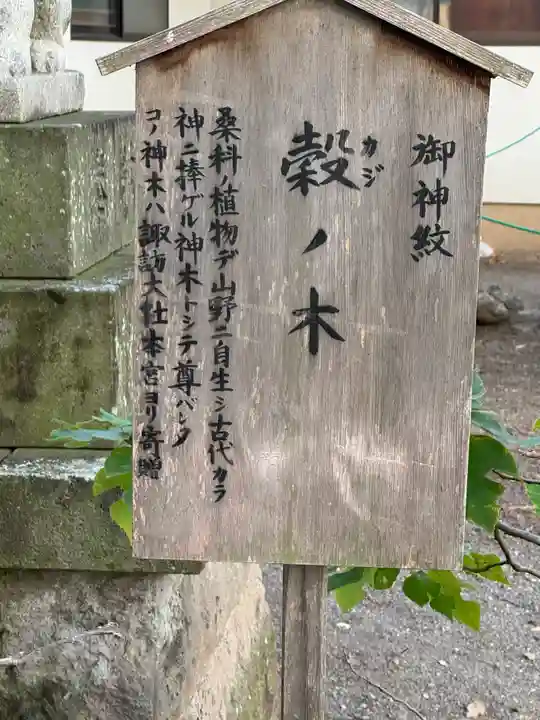 御神紋
穀ノ木
カジ
桑科ノ植物デ山野ニ自生シ古代カラ
神ニ捧ゲル神木トシテ尊バレタ
コノ神木ハ諏訪大社本宮ヨリ寄贈